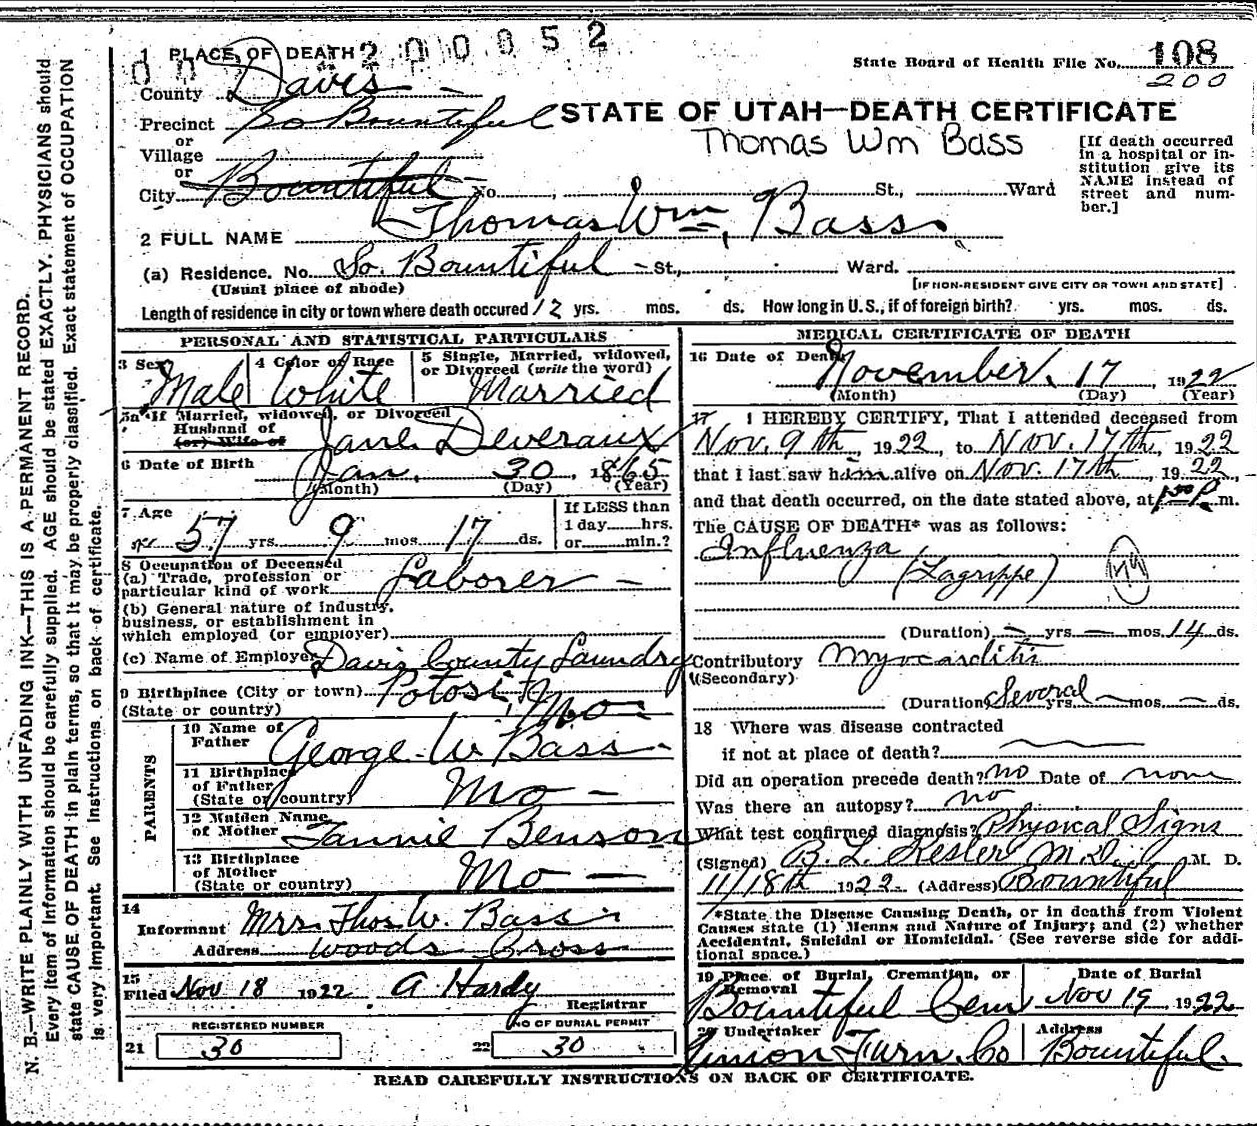 1 PLACE OF DEATH 200852
State Board of Health File No. 108
200
County Davis
Precinct So Bountiful
STATE OF UTAH—DEATH CERTIFICATE
or
Village
Thomas Wm Bass
or
City Bountiful No. St., Ward
[If death occurred
in a hospital or in-
stitution give its
NAME instead of
street and num-
ber.]
2 FULL NAME Thomas Wm, Bass
(a) Residence. No. So. Bountiful St., Ward.
(Usual place of abode)
[IF NON-RESIDENT GIVE CITY OR TOWN AND STATE]
Length of residence in city or town where death occured 12 yrs. mos. ds. How long in U.S., if of foreign birth? yrs. mos. ds.
PERSONAL AND STATISTICAL PARTICULARS
3 Sex Male
4 Color or Race White
5 Single, Married, widowed,
or Divorced (write the word)
Married
5a If Married, widowed, or Divorced
Husband of
(or) Wife of
Jane Deveraux
6 Date of Birth Jan. 30, 1865
(Month) (Day) (Year)
7 Age
57 yrs. 9 mos. 17 ds.
If LESS than
1 day hrs.
or min.?
8 Occupation of Deceased
(a) Trade, profession or
particular kind of work Laborer
(b) General nature of Industry,
business, or establishment in
which employed (or employer)
(c) Name of Employer Davis County Laundry
9 Birthplace (City or town) Potosi,
(State or country) Mo
PARENTS
10 Name of
Father George W Bass
11 Birthplace
of Father
(State or country) Mo
12 Maiden Name
of Mother Fannie Benson
13 Birthplace
of Mother
(State or country) Mo
14
Informant Mrs. Thos W. Bass
Address Woods Cross
15
Filed Nov 18 1922 A Hardy
Registrar
REGISTERED NUMBER
21 30
NO OF BURIAL PERMIT
22 30
MEDICAL CERTIFICATE OF DEATH
16 Date of Death
November 17, 1922
(Month) (Day) (Year)
17 I HEREBY CERTIFY, That I attended deceased from
Nov. 9th, 1922, to Nov. 17th, 1922
that I last saw him alive on Nov. 17th, 1922
and that death occurred, on the date stated above, at 1:50 P m.
The CAUSE OF DEATH* was as follows:
Influenza
(Lagrippe)
(Duration) yrs. mos. 14 ds.
Contributory Myocarditis
(Secondary)
(Duration) Several yrs. mos. ds.
18 Where was disease contracted
if not at place of death?
Did an operation precede death? no Date of none
Was there an autopsy? no
What test confirmed diagnosis? Physical Signs
(Signed) B. L. Kesler M.D. M. D.
11/18th 1922 (Address) Bountiful
*State the Disease Causing Death, or in deaths from Violent
Causes state (1) Menns and Nature of Injury; and (2) whether
Accidental, Suicidal or Homicidal. (See reverse side for addi-
tional space.)
19 Place of Burial, Cremation, or
Removal
Bountiful Cem
Date of Burial
Nov 19 1922
20 Undertaker
Union Furn. Co
Address
Bountiful.
READ CAREFULLY INSTRUCTIONS ON BACK OF CERTIFICATE.
N. B.—WRITE PLAINLY WITH UNFADING INK—THIS IS A PERMANENT RECORD.
Every item of information should be carefully supplied. AGE should be stated EXACTLY. PHYSICIANS should
state CAUSE OF DEATH in plain terms, so that it may be properly classified. Exact statement of OCCUPATION
is very important. See instructions on back of certificate.